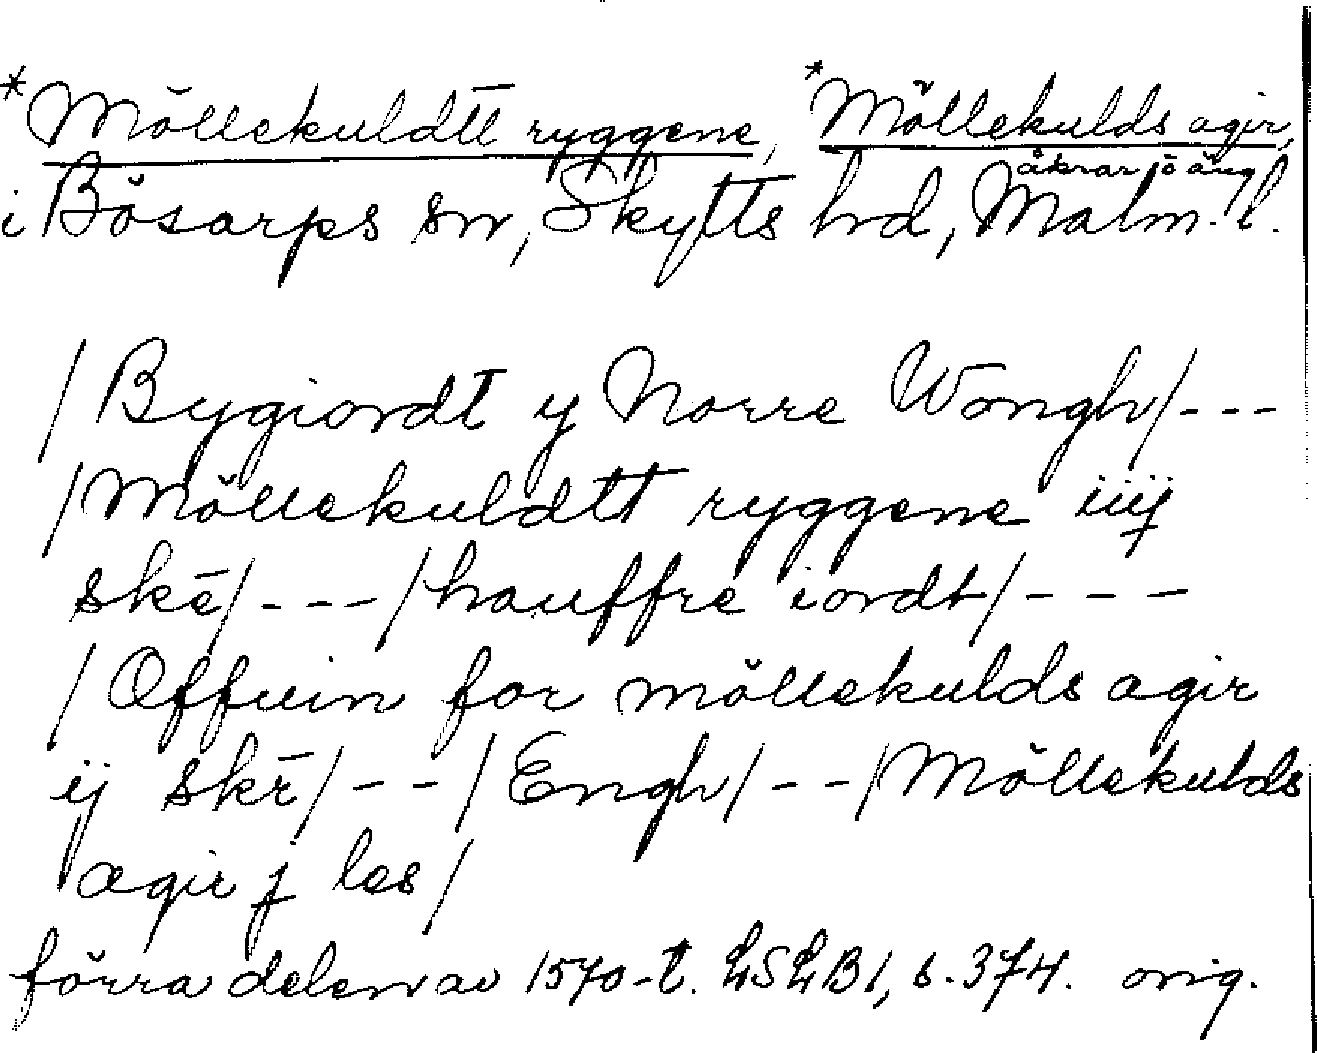 *Möllekuldtt ryggene, *Möllekulds agir,
åkrar o äng
i Bösarps sn, Skytts hd, Malm. l.
/Bygiordt y Norre Wongh/---
/Möllekuldtt ryggene iiij
skē/---/hauffre iordt/---
/Offuin for möllekulds agir
ij skē/--/Engh/--/Möllekulds
agir j les/
förra delen av 1570-t. LSLB1, s. 374. orig.